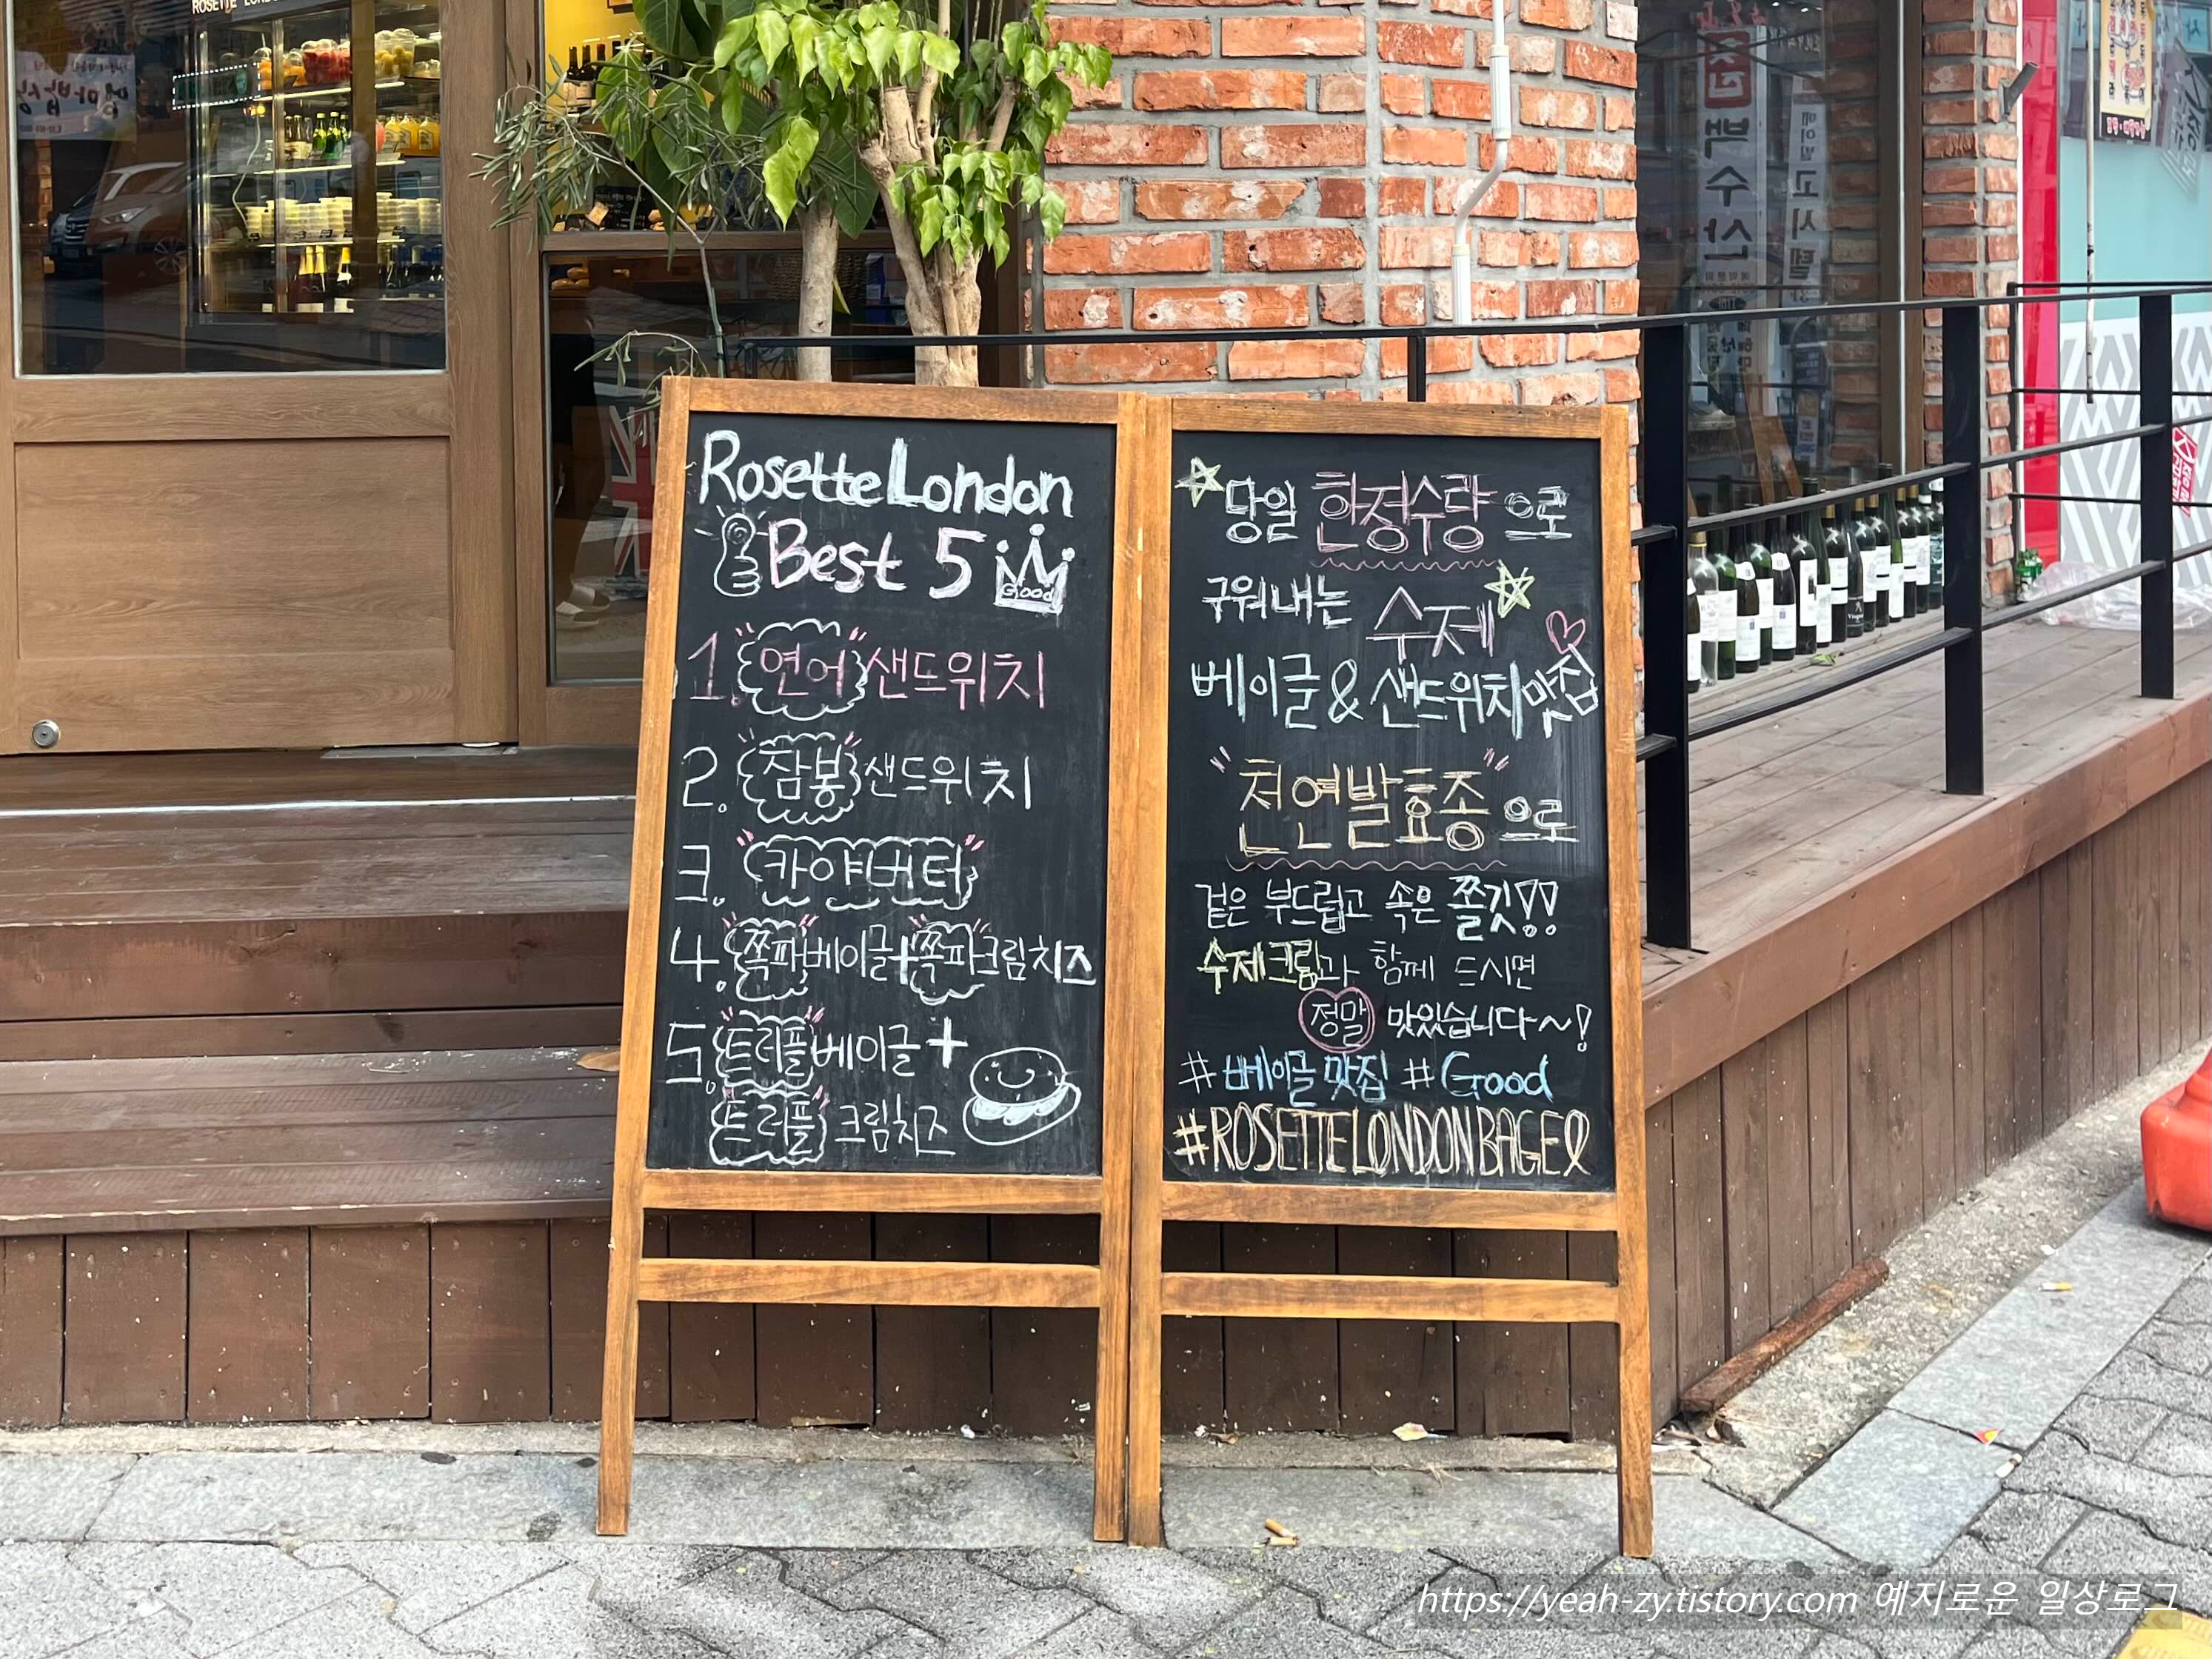 ROSETTE
Rosette London
Best 5
Good
1. 연어 샌드위치
2. 잠봉 샌드위치
3. 카야버터
4. 쪽파베이글+쪽파크림치즈
5. 트러플베이글+
트러플 크림치즈
당일 한정수량으로
구워내는 수제
베이글 & 샌드위치맛집
"천연발효종"으로
겉은 부드럽고 속은 쫄깃!!
수제크림과 함께 드시면
정말 맛있습니다~!
#베이글맛집 #Good
#ROSETTELONDONBAGEl
백수산
https://yeah-zy.tistory.com 예지로운 일상로그